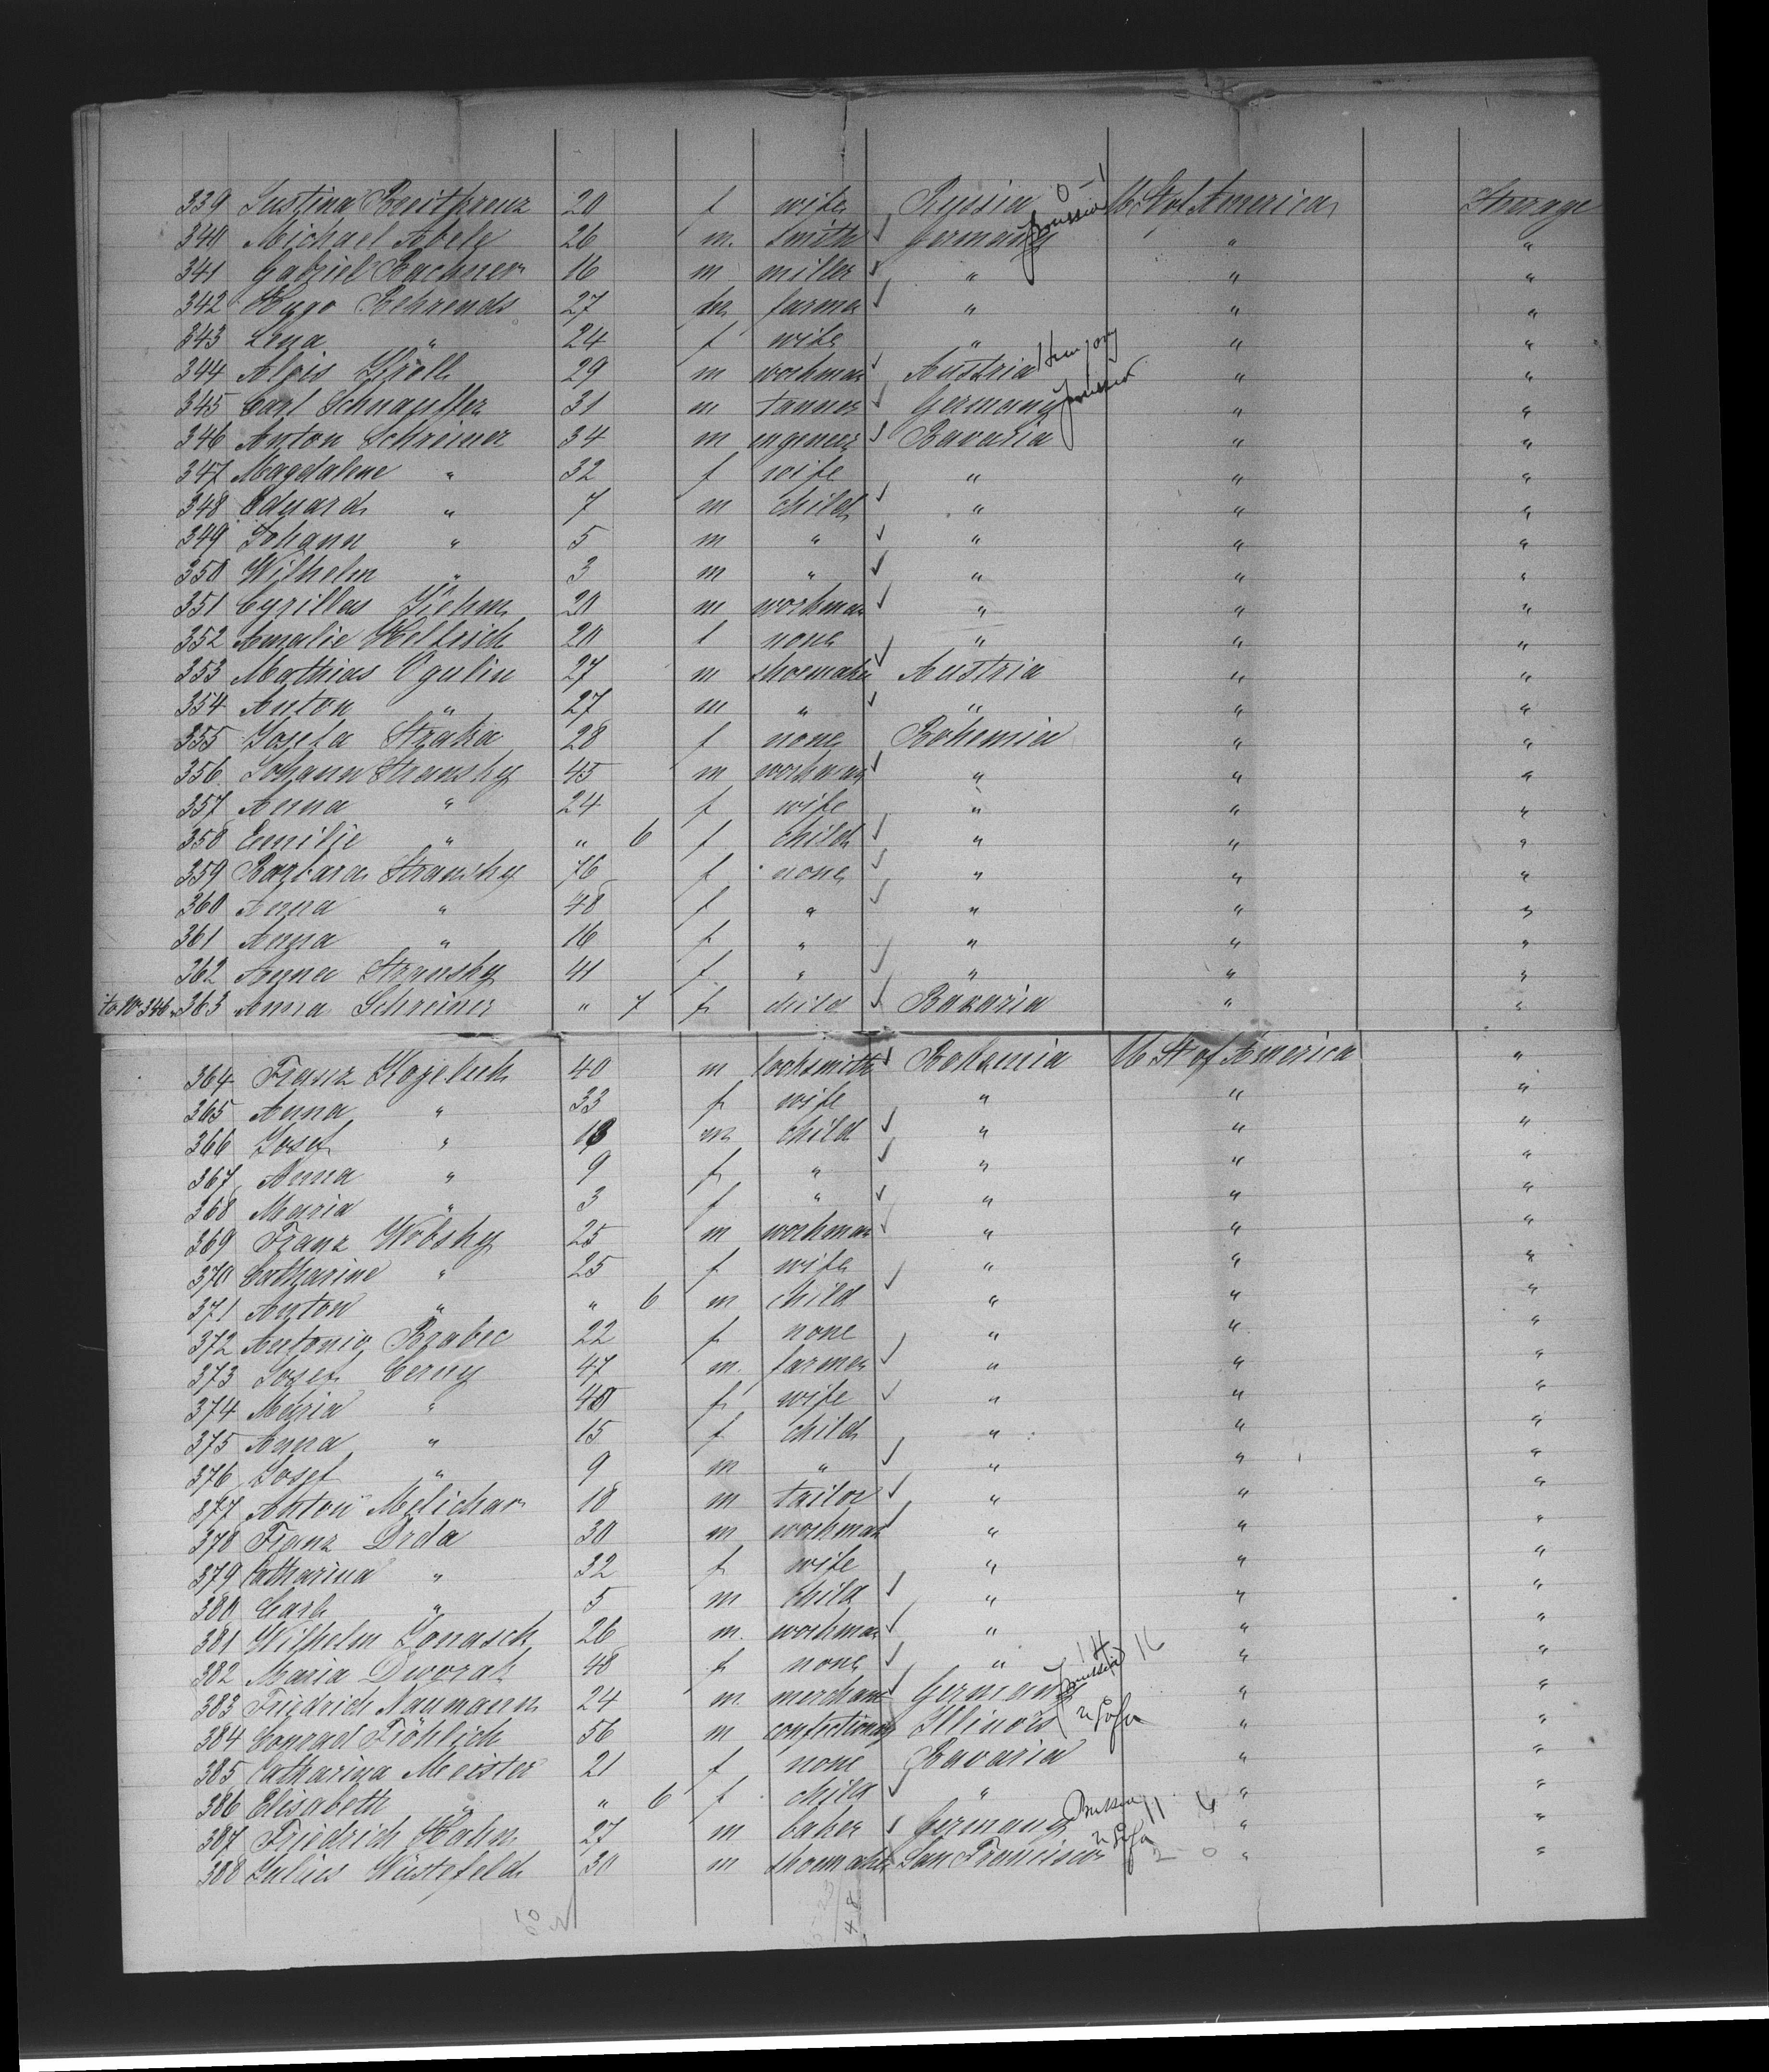 339 Justina Breitkreuz 20 f wife Russia 0-1 U. St. of America Steerage
340 Michael Abele 26 m. smith ✓ Germany Prussia " "
341 Gabriel Bachner 16 m miller ✓ " " "
342 Hugo Behrends 27 m farmer ✓ " " "
343 Lena " 24 f wife " " "
344 Alois Kroll 29 m workman ✓ Austria Hungary " "
345 Carl Schnauffer 31 m tanner ✓ Germany Prussia " "
346 Anton Schreiner 34 m ingeneer ✓ Bavaria " "
347 Magdalene " 32 f wife " " "
348 Eduard " 7 m child ✓ " " "
349 Johann " 5 m " ✓ " " "
350 Wilhelm " 3 m " ✓ " " "
351 Cyrillas 20 m workman ✓ " " "
352 Amalie Helfrich 20 f none " " "
353 Mathias Ogulin 27 m shoemaker ✓ Austria " "
354 Anton " 27 m " ✓ " " "
355 Josefa Straka 28 f none Bohemia " "
356 Johann Stransky 45 m workman ✓ " " "
357 Anna " 24 f wife " " "
358 Emilie " " 6 f child ✓ " " "
359 Barbara Stransky 76 f none ✓ " " "
360 Anna " 48 f " ✓ " " "
361 Anna " 16 f " " " "
362 Anna Stransky 41 f " ✓ " " "
to No 346 363 Anna Schreiner " 7 f child ✓ Bavaria " "
364 Franz Kozeluch 40 m locksmith ✓ Bohemia U. St. of America "
365 Anna " 33 f wife " " "
366 Josef " m child ✓ " " "
367 Anna " 9 f " ✓ " " "
368 Maria " 3 f " ✓ " " "
369 Franz Wobsky 25 m workman ✓ " " "
370 Catharine " 25 f wife " " "
371 Anton " " 6 m child ✓ " " "
372 Antonio Brabec 22 f none " " "
373 Josef Cerny 47 m. farmer ✓ " " "
374 Maria " 40 f wife ✓ " " "
375 Anna " 15 f child " " "
376 Josef " 9 m " ✓ " " "
377 Anton Melichar 18 m tailor ✓ " " "
378 Franz Drda 30 m workman ✓ " " "
379 Catharina " 32 f wife " " "
380 Carl " 5 m child ✓ " " "
381 Wilhelm Jonasch 26 m. workman ✓ " " "
382 Maria Dworak 48 f none ✓ " 14 16 " "
383 Friedrich Naumann 24 m. merchant ✓ Germany Prussia " "
384 Conrad Fröhlich 56 m confectioner Illinois " "
385 Catharina Meister 21 f none Bavaria " "
386 Elisabeth " " 6 f child ✓ " " "
387 Friedrich Hahn 27 m baker ✓ Germany Prussia 11 " "
388 Julius Wüstefeld 30 m shoemaker San Francisco 2 - 0 " "
48